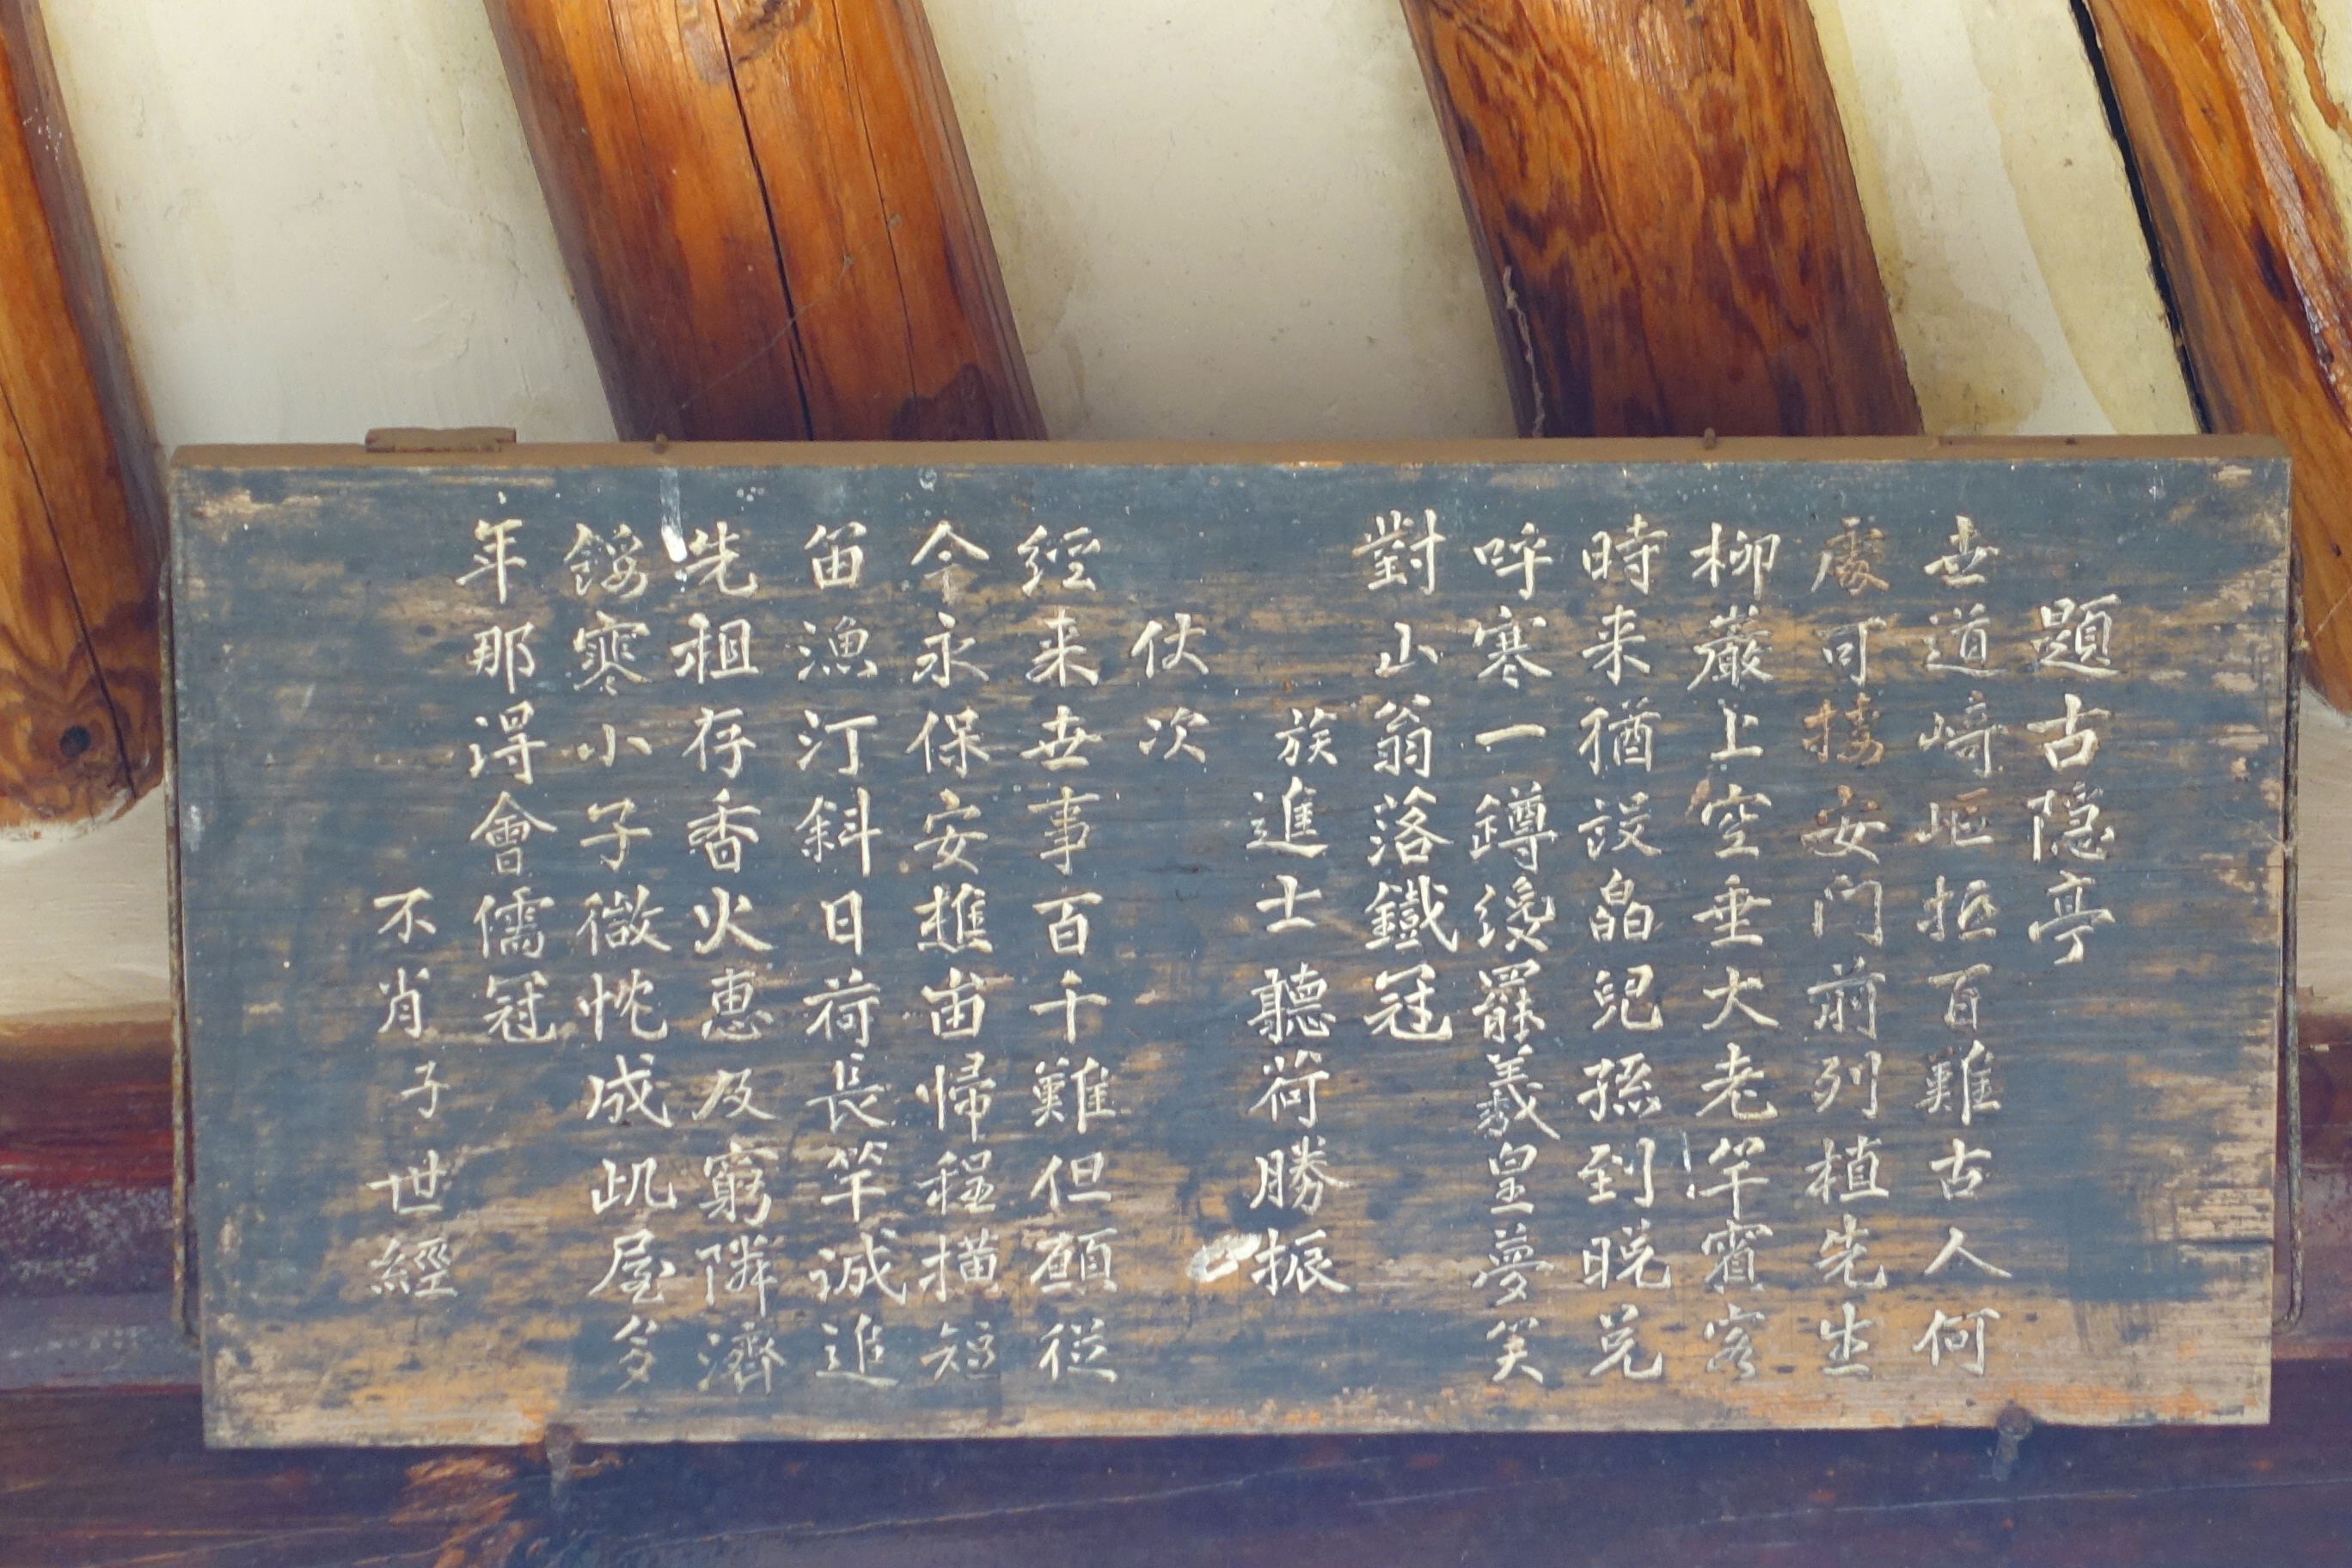 題古隠亭
世道崎嶇抵百難古人何
處可捿安门前列植先生
柳巖上空垂大老竿賓客
時来猶設晶兒孫到晩兑
呼寒一鐏綬罷羲皇夢笑
對山翁落鐵冠
族進士聽荷勝振
伏次
經来世事百千難但願従
今永保安樵笛帰程横短
笛漁汀斜日荷長竿誠追
先祖存香火恵及窮隣濟
餒寒小子微忱成此屋多
年那得會儒冠
不肖子世經